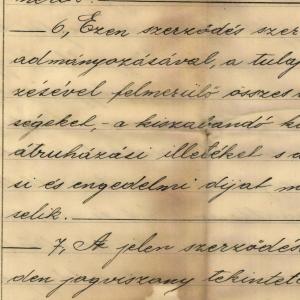 — 6, Ezen szerződés szer
admányozásával, a tulaj
zésével felmerülő összes
ségekel, - a kiszabandó
átruházási illetékel s a
si és engedelmi díjat m
selik.
— 7, Az jelen szerződés
den jogviszony tekintet